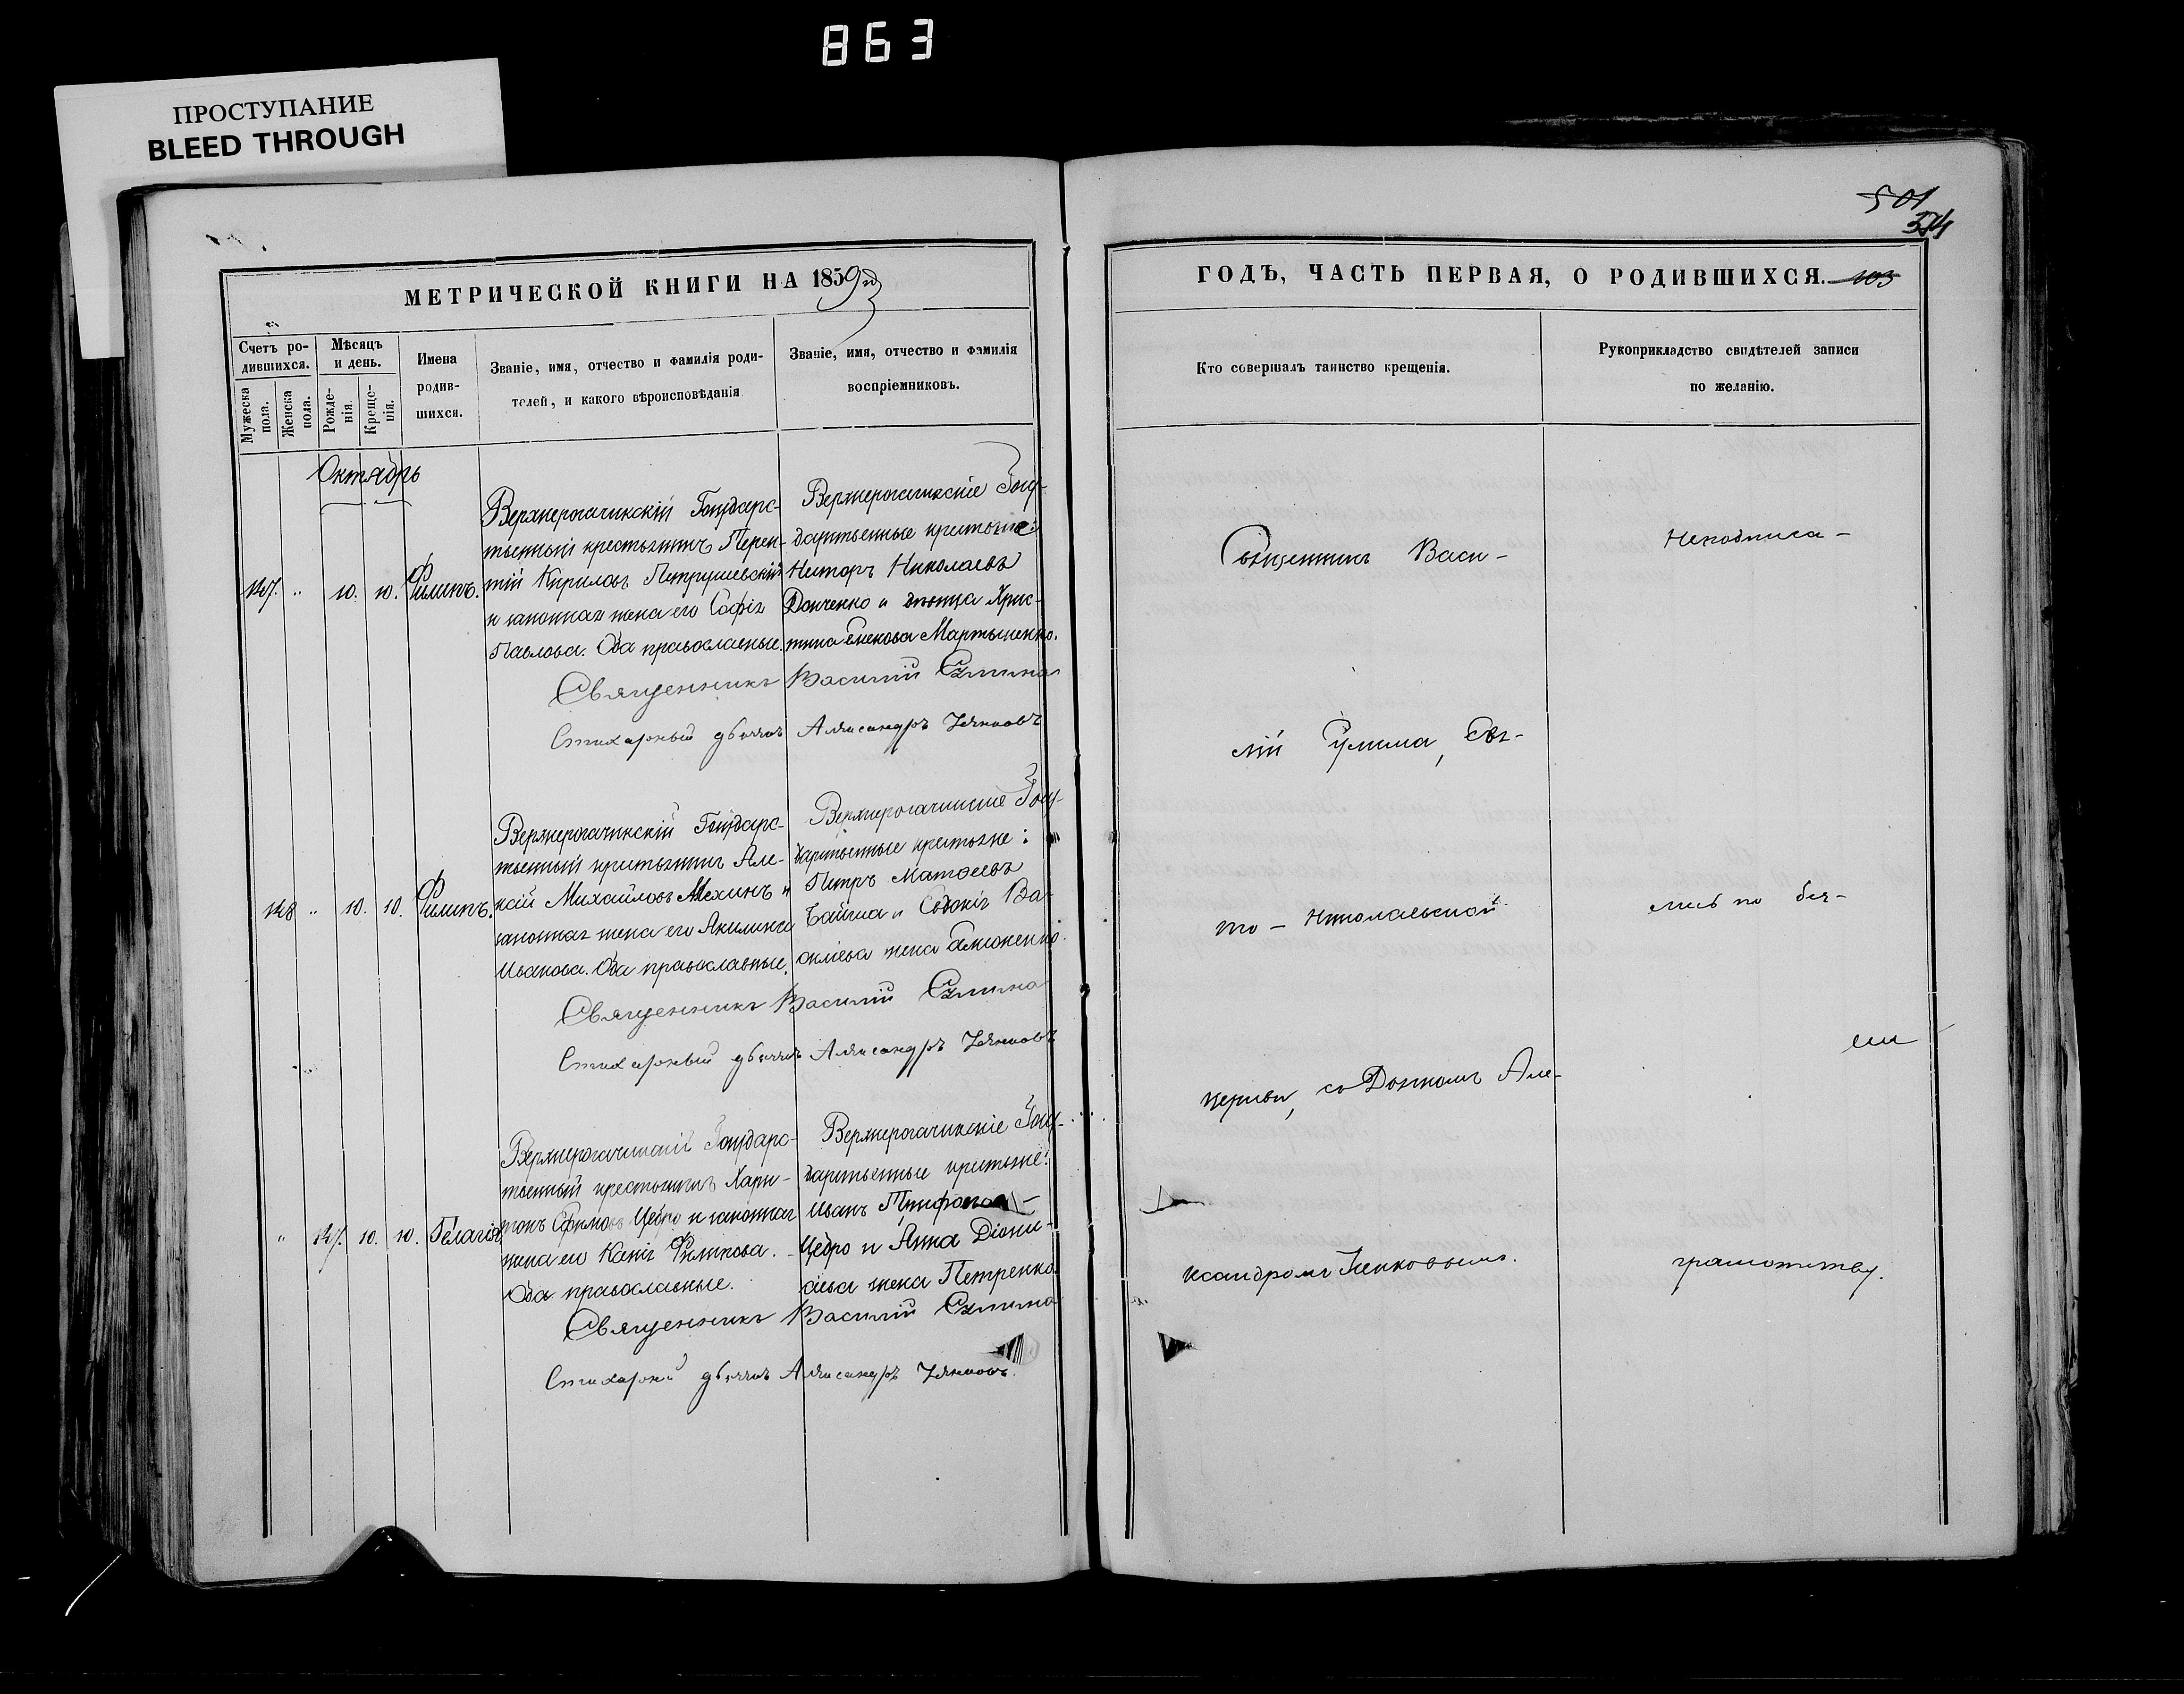 863
ПРОСТУПАНИЕ
BLEED THROUGH
501
МЕТРИЧЕСКОЙ КНИГИ НА 1859й
Счетъ ро-
дившихся.
Мужеска
пола.
Женска
пола.
Мѣсяцъ
и день.
Рожде-
нія.
Креще-
нія.
Имена
родив-
шихся.
Званіе, имя, отчество и фамилія роди-
телей, и какого вѣроисповѣданія
Званіе, имя, отчество и фамилія
воспріемниковъ.
Октябрь
147. " 10. 10. Филипъ.
Верхнерогачикскій Государс-
твенный крестьянинъ Терен-
тій Кириловъ Петрушевскій
и законная жена его Софія
Павлова. Оба православные.
Верхнерогачикскіе Госу-
дарственные крестьяне:
Несторъ Николаевъ
Донченко и девица Хрис-
тина Мартыненко.
Священникъ Василій Сулима
Стихарный дьячекъ Александръ
148 " 10. 10. Филипъ.
Верхнерогачикскій Государс-
твенный крестьянинъ Але-
ксѣй Михайловъ Мехинъ и
законная жена его Акилина
Иванова. Оба православные.
Верхнерогачикскіе Госу-
дарственные крестьяне:
Петръ Матвеевъ
Байша и Евдокія Ва-
силіева жена
Священникъ Василій Сулима
Стихарный дьячекъ Александръ
" 147. 10. 10. Пелагія
Верхнерогачикскій Государс-
твенный крестьянинъ Хари-
тонъ Ефимовъ Цебро и законная
жена его Ксенія Филипова.
Оба православные.
Верхнерогачикскіе Госу-
дарственные крестьяне:
Иванъ
Цебро и Анна Діони-
сіева жена Петренко.
Священникъ Василій Сулима
Стихарный дьячекъ Александръ
ГОДЪ, ЧАСТЬ ПЕРВАЯ, О РОДИВШИХСЯ. 103
Кто совершалъ таинство крещенія.
Рукоприкладство свидѣтелей записи
по желанію.
Священникъ Васи-
лій Сулима, Свя-
то-Николаевской
церкви, съ Дьячкомъ Але-
ксандромъ
Неподписа-
лись по без-
грамотству.